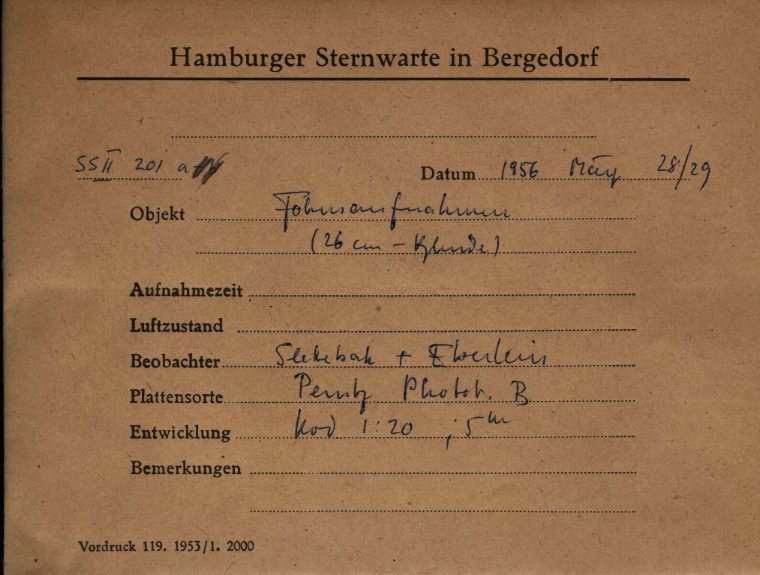 Hamburger Sternwarte in Bergedorf
SSII 201 a
Datum 1956 März 28/29
Objekt Fokusaufnahmen
(26 cm - Blende)
Aufnahmezeit
Luftzustand
Beobachter + Eberlein
Plattensorte Perutz Photot. B
Entwicklung Rod 1:20, 5 m
Bemerkungen
Vordruck 119. 1953/1. 2000